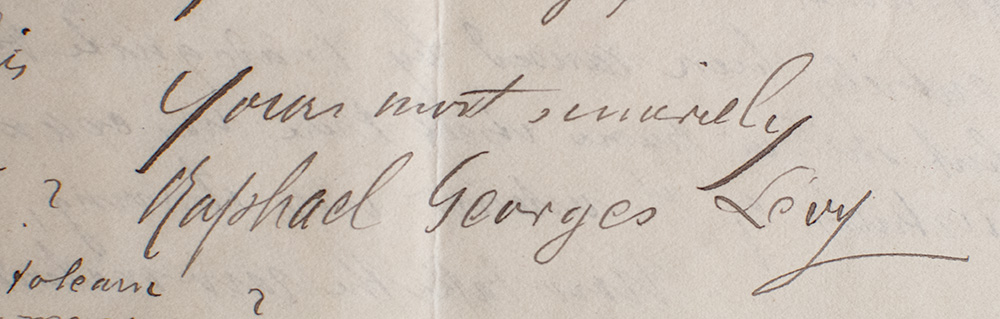 is
Yours most sincerely
?
Raphael Georges Lévy
to learn
?